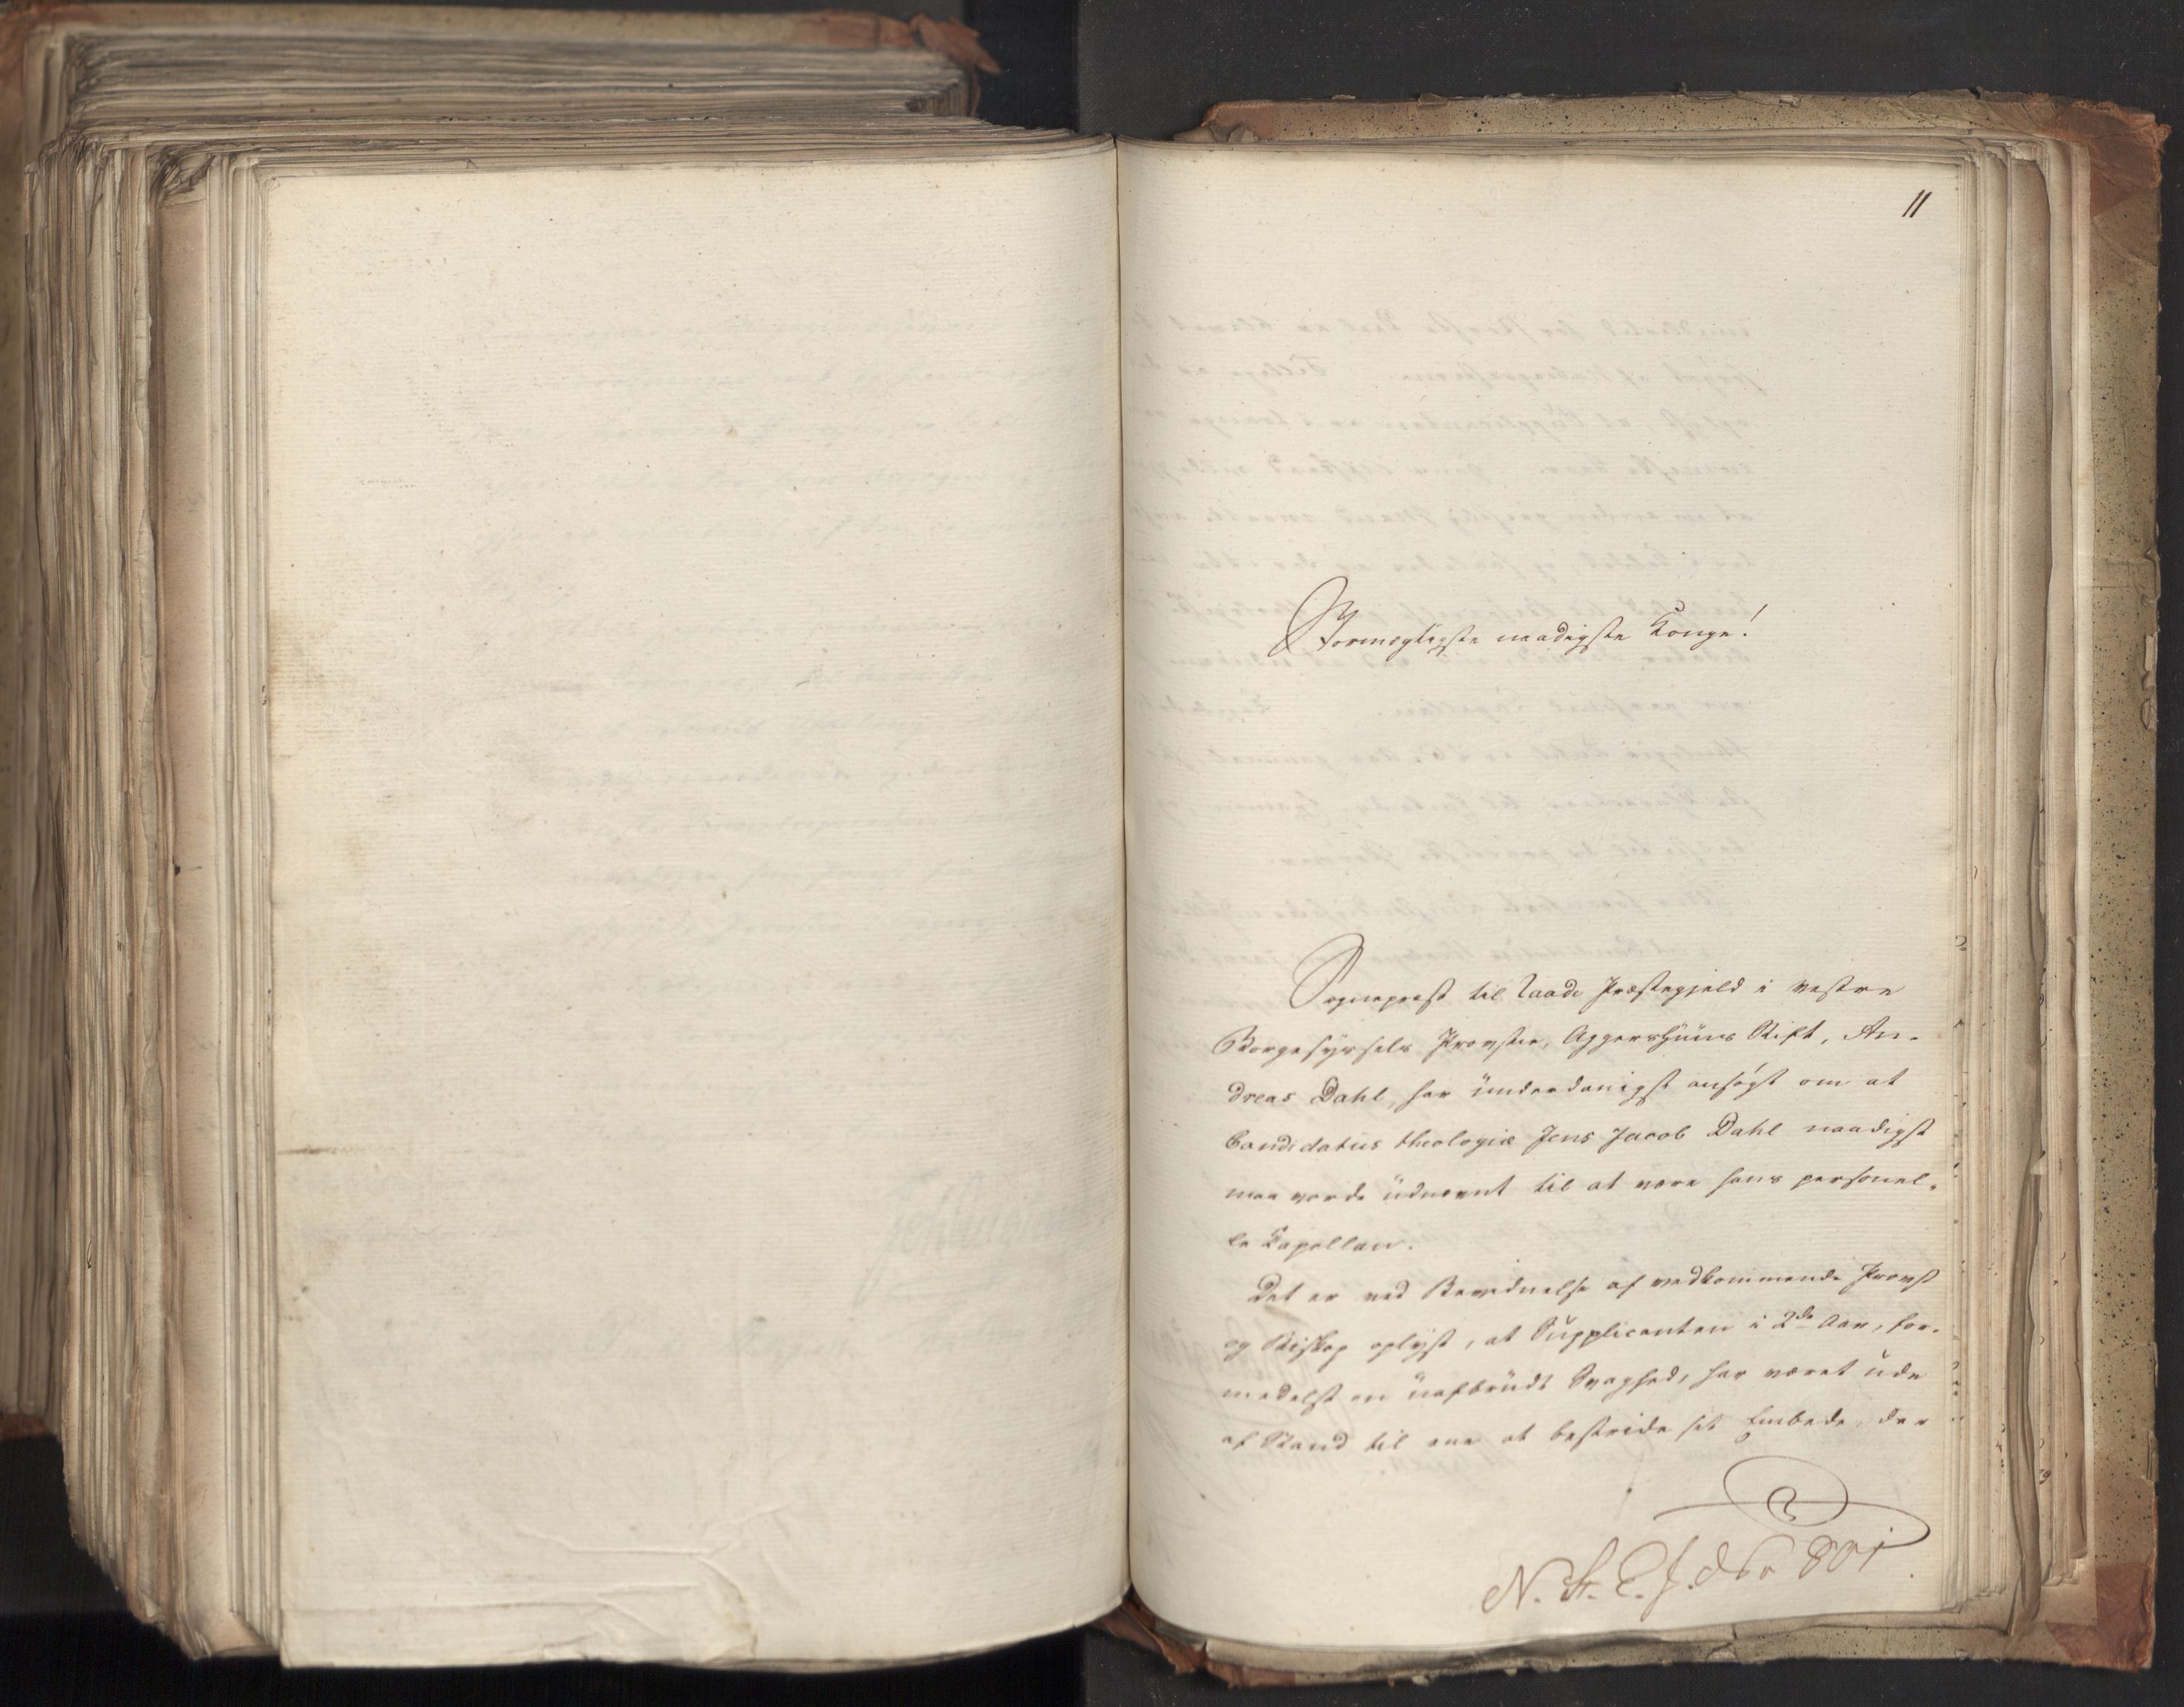 11
Stormægtigste naadigste Konge!
Sognepræst til Raade Præstegjeld i vestre
Borgesyssels Provstie, Aggershuus Stift, An-
dreas Dahl, har underdanigst ansøgt om at
Candidatus theologiæ Jens Jacob Dahl naadigst
maa vorde udnævnt til at være hans personel-
le Kapellan.
Det er ved Bevidnelse af vedkommende Provst
og Biskop oplyst, at Supplicanten i 2de Aar, for-
medelst en uafbrudt Svaghed, har været ude
af Stand til ene at bestride sit Embede, der